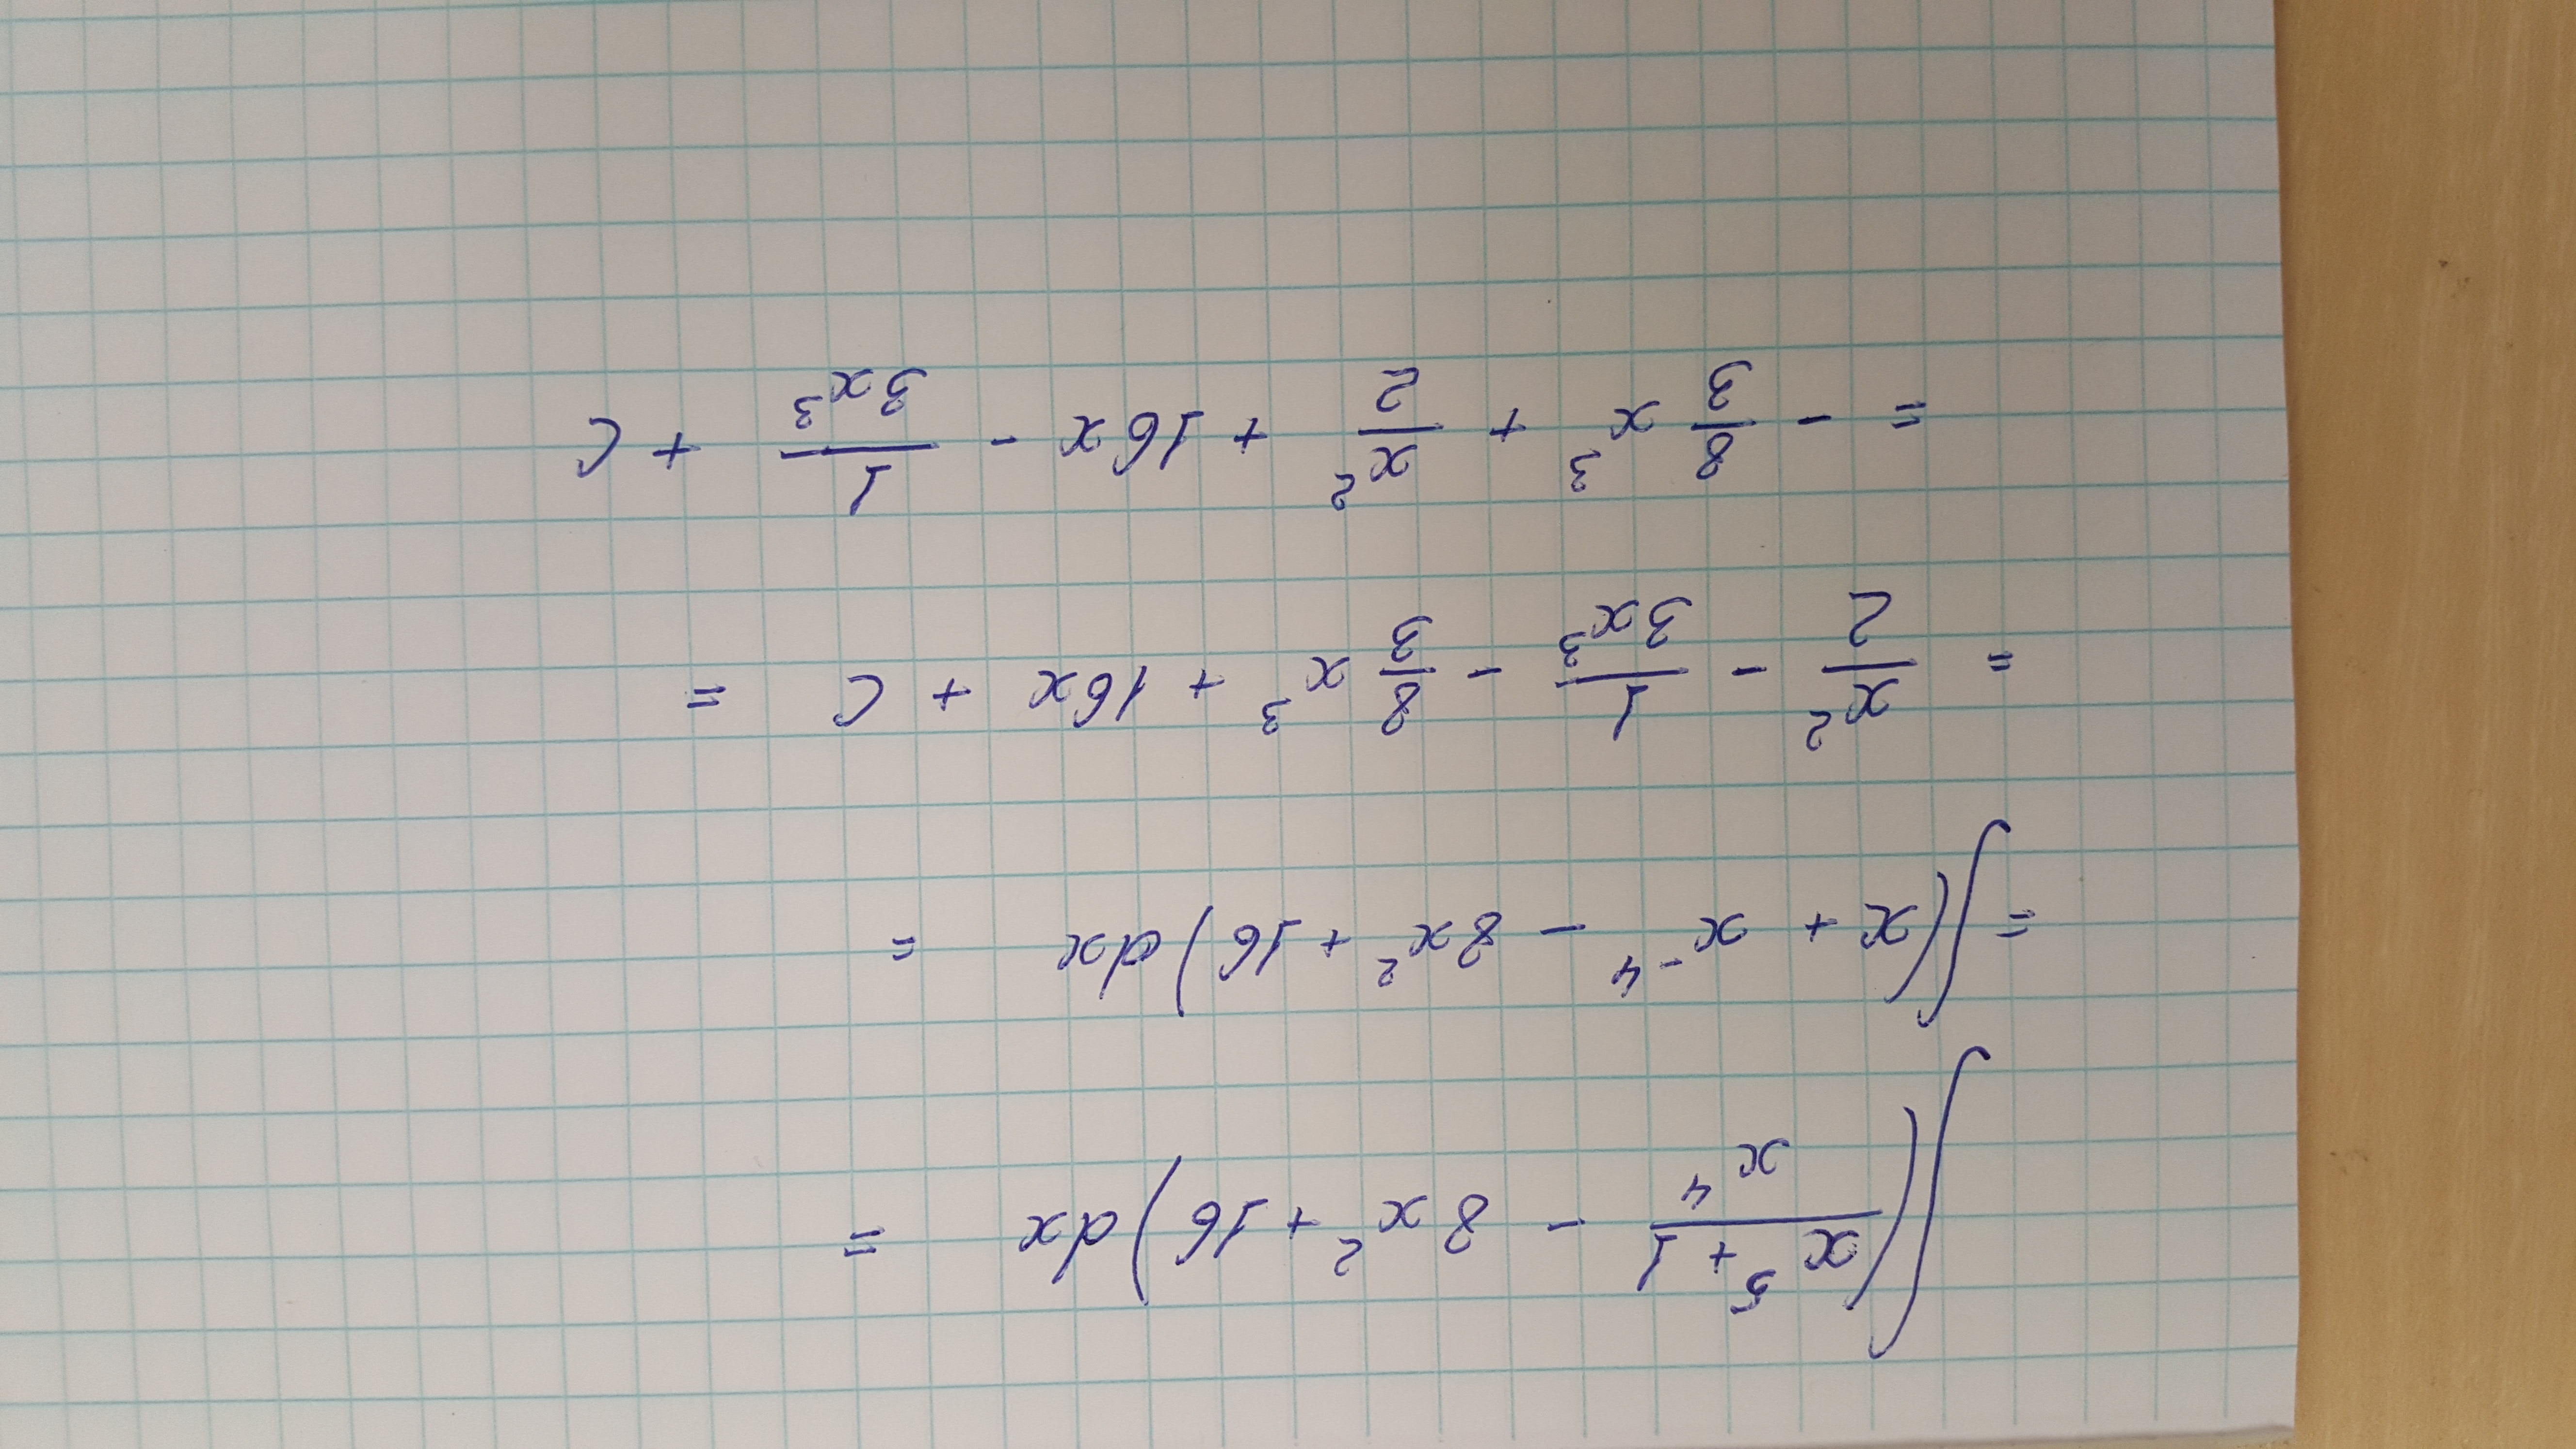 ∫((x^5 + 1)/x^4 - 8x^2 + 16)dx =
= ∫(x + x^-4 - 8x^2 + 16)dx =
= x^2/2 - 1/(3x^3) - 8/3 x^3 + 16x + C =
= - 8/3 x^3 + x^2/2 + 16x - 1/(3x^3) + C